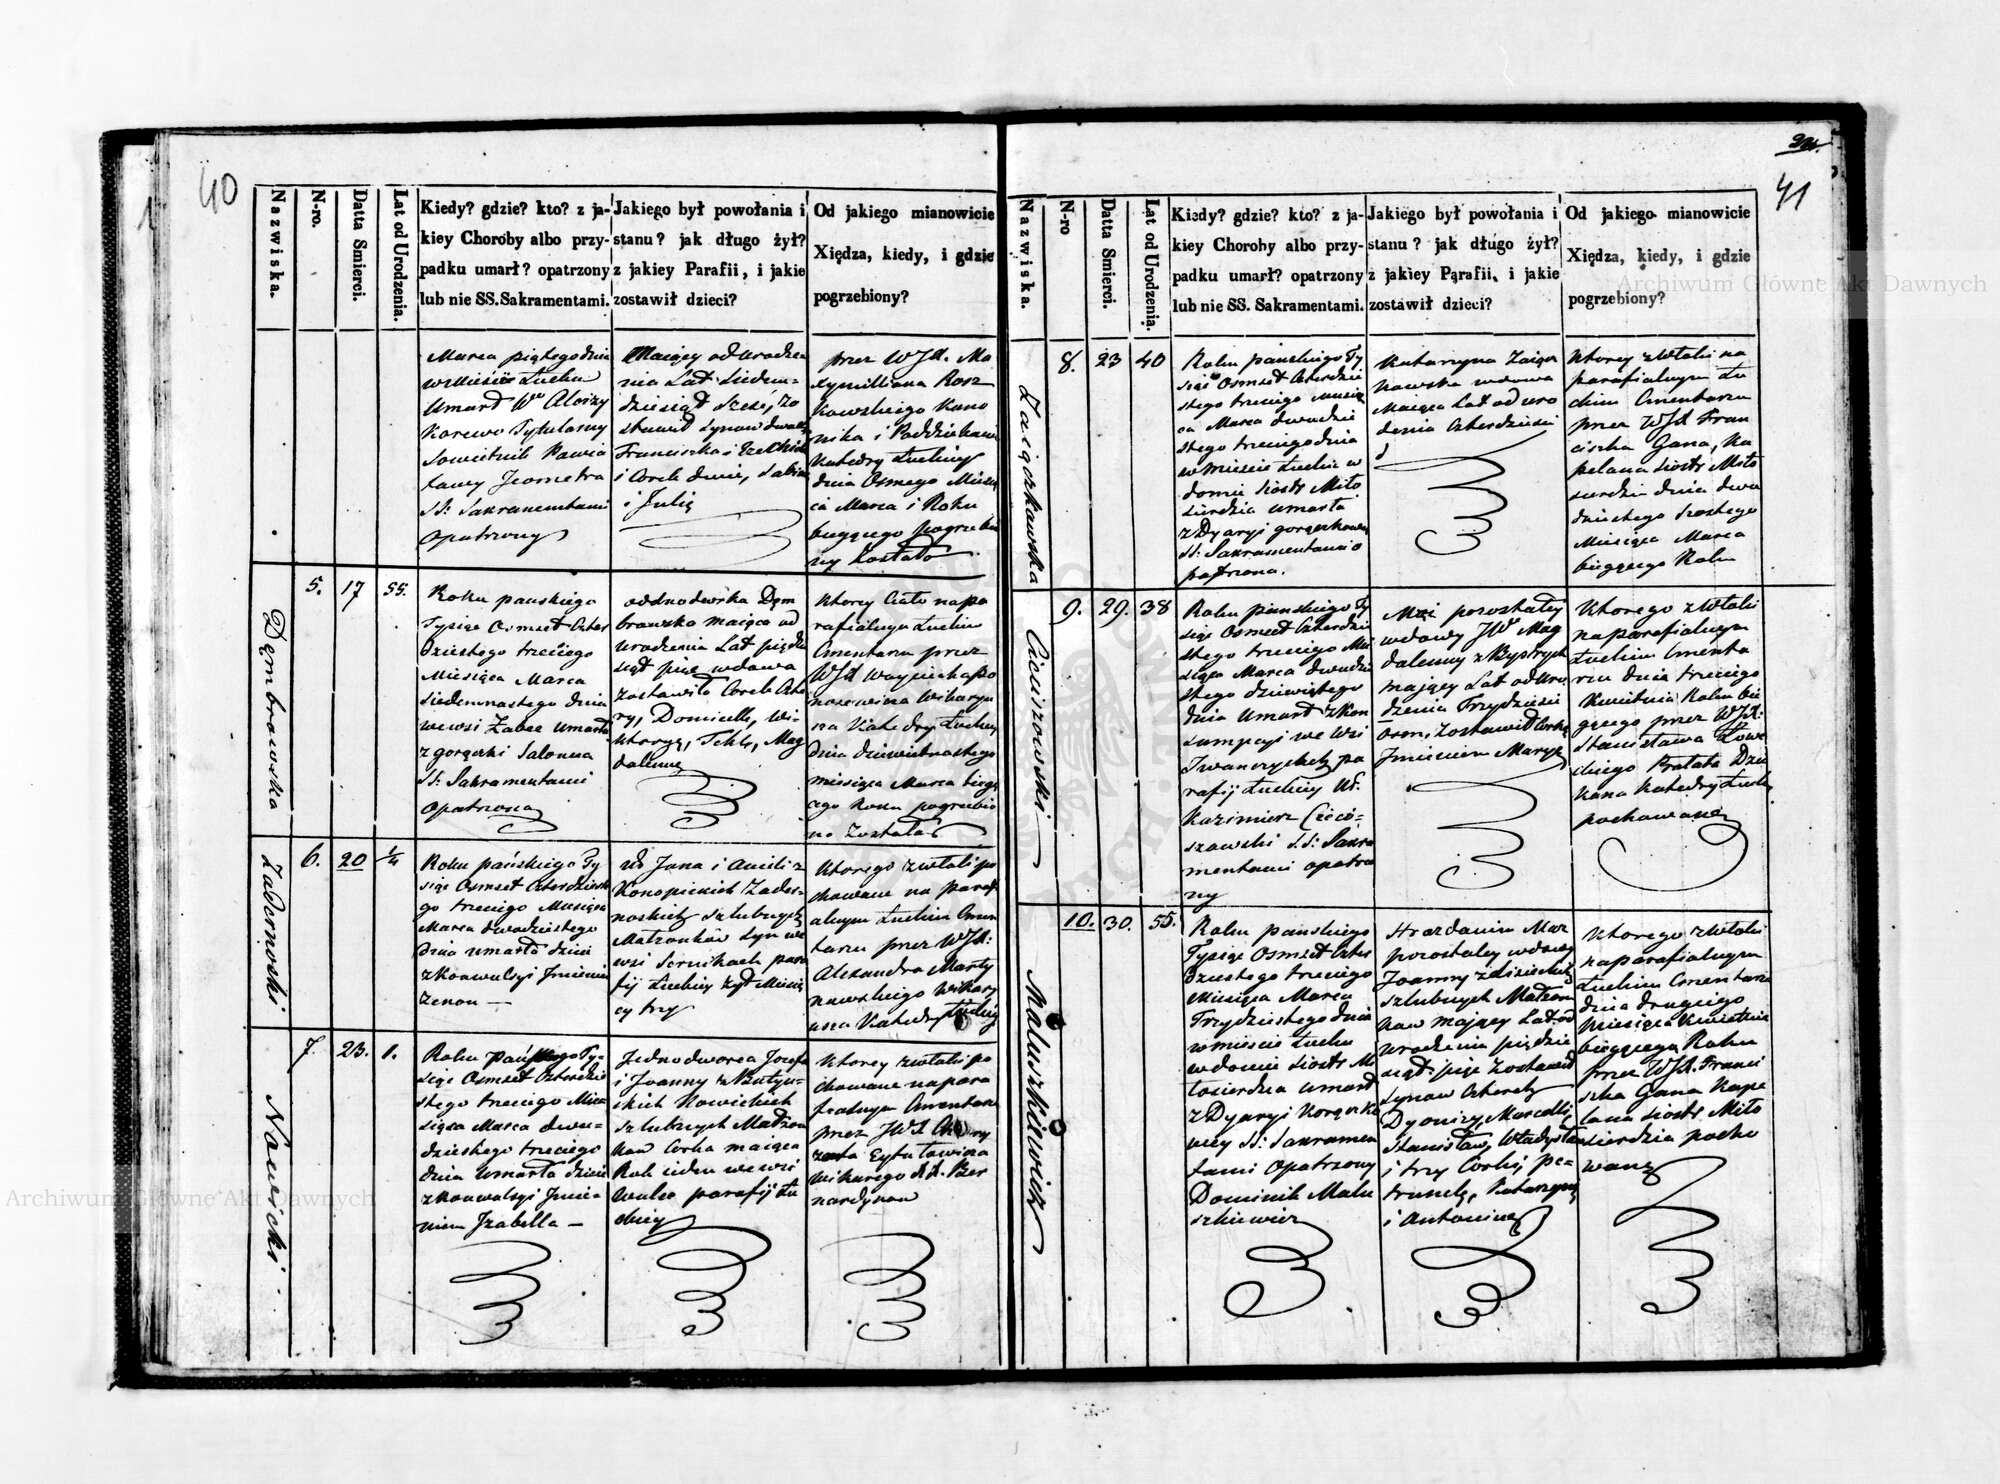 40
Nazwiska.
N-ro.
Datta Smierci.
Lat od Urodzenia.
Kiedy? gdzie? kto? z ja-
kiey Choroby albo przy-
padku umarł? opatrzony
lub nie SS. Sakramentami.
Jakiego był powołania i
stanu? jak długo żył?
z jakiey Parafii, i jakie
zostawił dzieci?
Od jakiego mianowicie
Xiędza, kiedy, i gdzie
pogrzebiony?
Marca piątego dnia
w Mieście Łucku
Umarł Wny Aloizy
Korewo Tytularny
Sowietnik Powia
towy Jeometra
SS: Sakramentami
Opatrzony
Maiący od urodze
nia Lat Siedm-
dziesiąt Sześć, zo
stawił synów dwóch
Franciszka i Ezechiela
i Corek dwie, Sabinę
i Julię
przez WJX. Ma
xymilliana Rosz
kowskiego Kano
nika i Poddziekani
Katedry Łuckiey
dnia Osmego Miesią
ca Marca i Roku
bieżącego pogrzebio
ny Został
Dęmbrowska
5.
17
55.
Roku pańskiego
Tysiąc Osmset Czter
dziestego trzeciego
Miesiąca Marca
Siedemnastego dnia
we wsi Zabce umarła
z gorączki Salomea
SS: Sakramentami
Opatrzona
odnodworka Dęm
browska maiąca od
urodzenia Lat pięćdzie
siąt pięć wdowa
zostawiła Corek Czte
ry, Domicellę, Wi-
ktoryę, Teklę, Mag
dalenę
Ktorey Ciało na pa
rafialnym Łuckim
Cmentarzu przez
WJX Woyciecha Po
norewicza Wikaryu
sza Katedry Łuckiey
dnia dziewietnastego
miesiąca Marca bieżą
cego Roku pogrzebio
no Zostało
Zadernowski
6.
20
1/4
Roku pańskiego Ty
siąc Osmset Czterdzieste
go trzeciego Miesiąca
Marca dwudziestego
dnia umarło dziecie
z konwulsyi Jmieniem
Zenon —
Ur Jana i Anieli z
Konopickich Zader-
noskich szlubnych
Małżonków syn we
wsi Sernikach para
fij Łuckiey żył Miesię
cy trzy
Ktorego zwłoki po
chowane na parafi
alnym Łuckim Cmen
tarzu przez WJX:
Alexandra Marty
nowskiego Wikary
usza Katedry Łuckiey
Nowicki
7.
23.
1.
Roku pańskiego Ty-
siąc Osmset Czterdzie
stego trzeciego Mie-
siąca Marca dwu-
dziestego trzeciego
dnia Umarło dziecie
z konwulsyi Jmie
niem Jzabella —
Jednodworca Jozefa
i Joanny z Butyn-
skich Nowickich
szlubnych Małżon
kow Corka maiąca
Rok ieden we wsi
Wulce parafij Łu
ckiey
Ktorey zwłoki po
chowane na para
fialnym Cmentarzu
przez JWX
Wikarego XX. Ber
nardynow
41
Nazwiska.
N-ro
Datta Smierci.
Lat od Urodzenia.
Kiedy? gdzie? kto? z ja-
kiey Choroby albo przy-
padku umarł? opatrzony
lub nie SS. Sakramentami.
Jakiego był powołania i
stanu? jak długo żył?
z jakiey Parafii, i jakie
zostawił dzieci?
Od jakiego mianowicie
Xiędza, kiedy, i gdzie
pogrzebiony?
Zaiączkowska
8.
23
40
Roku pańskiego Ty
siąc Osmset Czterdzie
stego trzeciego Miesią
ca Marca dwudzie
stego trzeciego dnia
w mieście Łucku w
domie Siostr Miło
sierdzia umarła
z Dyaryi gorączkowey
SS: Sakramentami o
patrzona.
Katarzyna Zaiącz
kowska wdowa
Maiąca Lat od uro
dzenia Czterdzieści
Ktorey zwłoki na
parafialnym Łu
ckim Cmentarzu
przez WJX Fran
ciszka Gana, Ka
pelana Siostr Miło
sierdzia dnia dwu
dziestego szostego
Miesiąca Marca
bieżącego Roku
Cieciszowski
9.
29.
38
Roku pańskiego Ty
siąc Osmset Czterdzie
stego trzeciego Mie
siąca Marca dwudzie
stego dziewiątego
dnia Umarł z kon
sumpcyi we Wsi
Jwanczyckach pa
rafij Łuckiey Ur.
Kazimierz Cieci-
szowski SS: Sakra
mentami opatrzo
ny
Mąż pozostałey
wdowy JW Mag
daleny z Bystrych
mający Lat od Uro
dzenia Trzydzieści
Osm, zostawił Corkę
Jmieniem Maryę
Ktorego zwłoki
na parafialnym
Łuckim Cmenta
rzu dnia trzeciego
Kwietnia Roku bie
żącego przez WJX:
Stanisława Łowi
ckiego Prałata Dzie
kana Katedry Łuckiey
pochowane
Maluszkiewicz
10.
30.
55.
Roku pańskiego
Tysiąc Osmset Czter
dziestego trzeciego
Miesiąca Marca
Trzydziestego dnia
w mieście Łucku
w domie Siostr Mi
łosierdzia umarł
z Dyaryi Gorączko
wey SS: Sakramen
tami Opatrzony
Dominik Malu
szkiewicz
Hrazdanin Mąż
pozostałey wdowy
Joanny z
szlubnych Małżon
kow mający Lat od
urodzenia pięćdzie
siąt pięć Zostawił
synow Czterech
Dyonizy, Marcelli,
Stanisław, Władysław
i trzy Corki, Pe-
trunelę, Katarzynę
i Antoninę
Ktorego zwłoki
na parafialnym
Łuckim Cmentarzu
dnia drugiego
Miesiąca Kwietnia
bieżącego Roku
przez WJX. Franci
szka Gana Kape
lana Siostr Miło
sierdzia pocho
wany
Archiwum Główne Akt Dawnych
Archiwum Główne Akt Dawnych